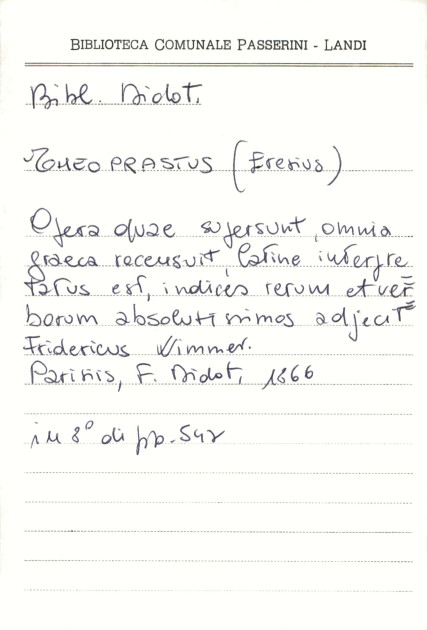 BIBLIOTECA COMUNALE PASSERINI - LANDI
Bibl. Didot,
THEOPRASTUS (Eresius)
Opera quae supersunt, omnia
graeca recensuit, latine interpre
tatus est, indices rerum et ver=
borum absolutissimos adjecit
Fridericus Wimmer.
Parisis, F. Didot, 1866
in 8° di pp. 542